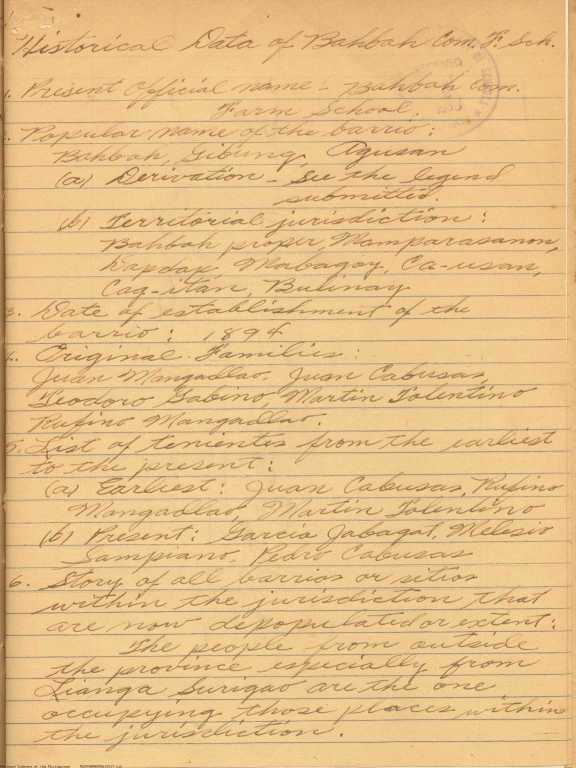 Historical Data of Bahbah Com. F. Sch.
1. Present official name - Bahbah Com.
Farm School.
2. Popular name of the barrio:
Bahbah, Gibung, Agusan
(a) Derivation - See the legend
submitted.
(b) Territorial jurisdiction:
Bahbah proper, Mamparasanon,
Dapdap, Mabagoy, Ca-usan,
Cag-itan, Bulinay
3. Date of establishment of the
barrio: 1894
4. Original Families:
Juan Mangadlao, Juan Cabusas,
Teodoro Gabino Martin Tolentino
Rufino Mangadlao.
5. List of tenientes from the earliest
to the present:
(a) Earliest: Juan Cabusas, Rufino
Mangadlao, Martin Tolentino
(b) Present: Garcia Jabagat, Melesio
Sampiano, Pedro Cabusas
6. Story of all barrios or sitios
within the jurisdiction that
are now depopulated or extent:
The people from outside
the province especially from
Lianga Surigao are the one
occupying those places within
the jurisdiction.